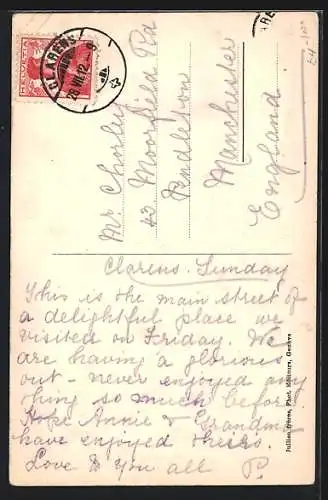 HELVETIA
CLARENS
28.VII.12.
Mr Chorley
42 Moorfield Rd
Pendleton
Manchester
England
Clarens. Sunday
This is the main street of
a delightful place we
visited on Friday. We
are having a glorious
out - never enjoyed any
thing so much before.
Hope Annie & Grandma
have enjoyed theirs.
Love to you all P.
Jullien frères, Phot. Editeurs, Genève